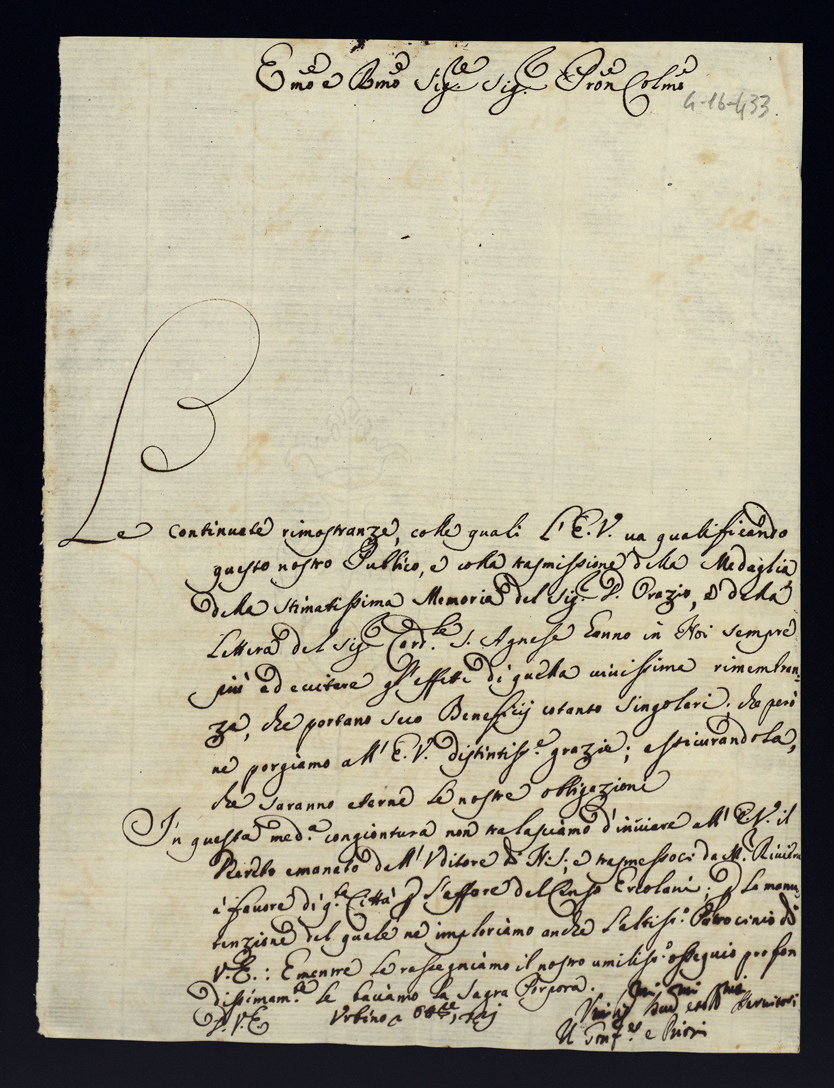 Emo e Rmo Sig.re Sig. Pron Colmo
4-16-433
Le continuate rimostranze, colle quali L'E.V. va qualificando
questo nostro Publico, e colla trasmissione della Medaglia
della stimatissima Memoria del Sig. D. Orazio, e della
Lettera del Sig. Card.le S. Agnese hanno in Noi sempre
più ad eccitare gl'effetti di quella vivissima rimembran-
za, che portano seco Beneficij cotanto singolari; che però
ne porgiamo all'E.V. distintiss.e grazie; assicurandola,
che saranno eterne le nostre obligazioni
In questa med.a congiontura non tralasciamo d'inviare all'E.V. il
emanato dall'Uditore di N.S., e trasmessoci da M. Riviera
à favore di q.ta Città p l'affare del Censo Ercolani; p la manu
tenzione del quale ne imploriamo anche l'altiss.o Patrocinio di
V.E.: E mentre le rassegniamo il nostro umiliss.o ossequio profon
dissimam.te le baciamo la Sagra Porpora.
D V.E. Urbino
Servitori
Il Gonf.re e Priori